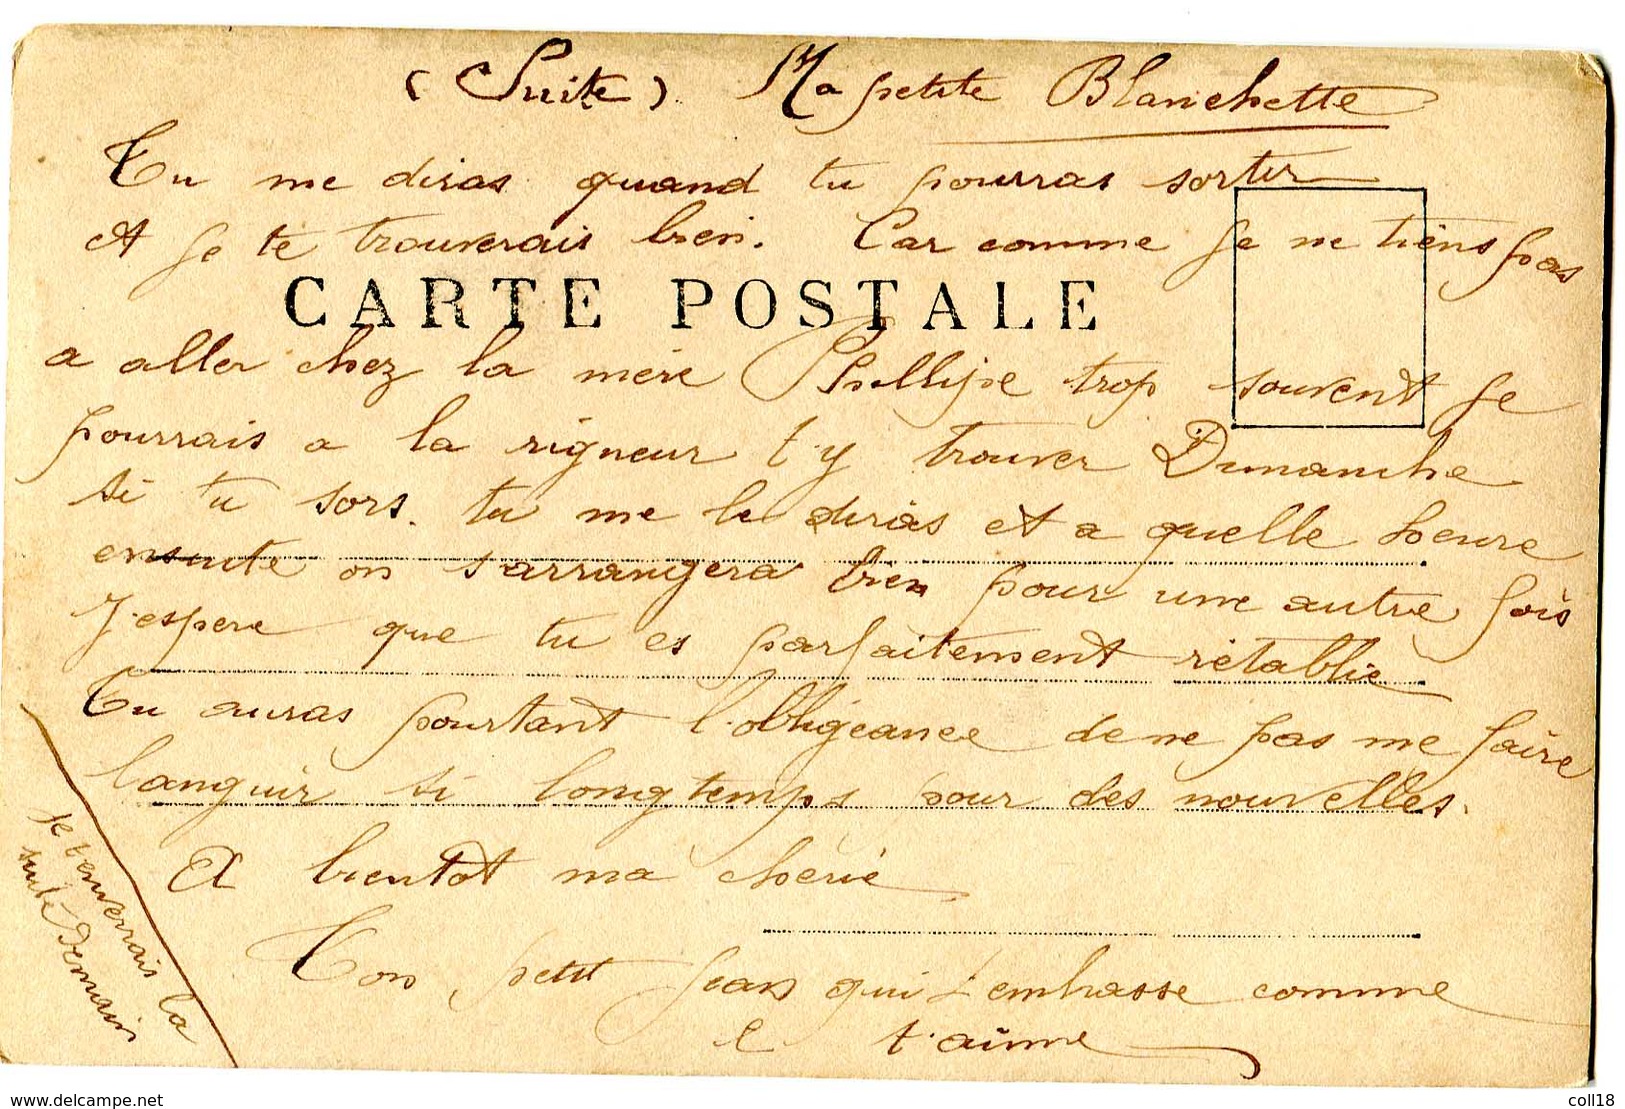 (Suite) Ma petite Blanchette
Tu me diras quand tu pourras sortir
et je te trouverais bien. Car comme je ne tiens pas
CARTE POSTALE
a aller chez la mère Phellipe trop souvent je
pourrais a la rigueur t'y trouver Dimanche
si tu sors. tu me le diras et a quelle heure
ensuite on s'arrangera bien pour une autre fois
J'espere que tu es parfaitement rétablie
Tu auras pourtant l'obligeance de ne pas me faire
languir si longtemps pour des nouvelles.
A bientot ma chérie
Ton petit Jean qui t'embrasse comme
e t'aime
je t'enverrais la
suite Demain
www.delcampe.net
coll18